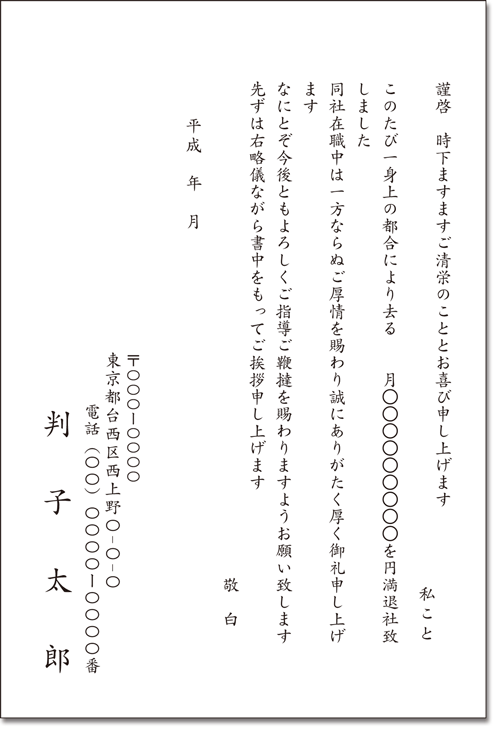 謹啓　時下ますますご清栄のこととお喜び申し上げます
私こと
このたび一身上の都合により去る　　月〇〇〇〇〇〇〇〇〇を円満退社致
しました
同社在職中は一方ならぬご厚情を賜わり誠にありがたく厚く御礼申し上げ
ます
なにとぞ今後ともよろしくご指導ご鞭撻を賜わりますようお願い致します
先ずは右略儀ながら書中をもってご挨拶申し上げます
敬白
平成　年　月
〒〇〇〇ー〇〇〇〇
東京都台西区西上野〇-〇-〇
電話（〇〇）〇〇〇〇ー〇〇〇〇番
判子太郎